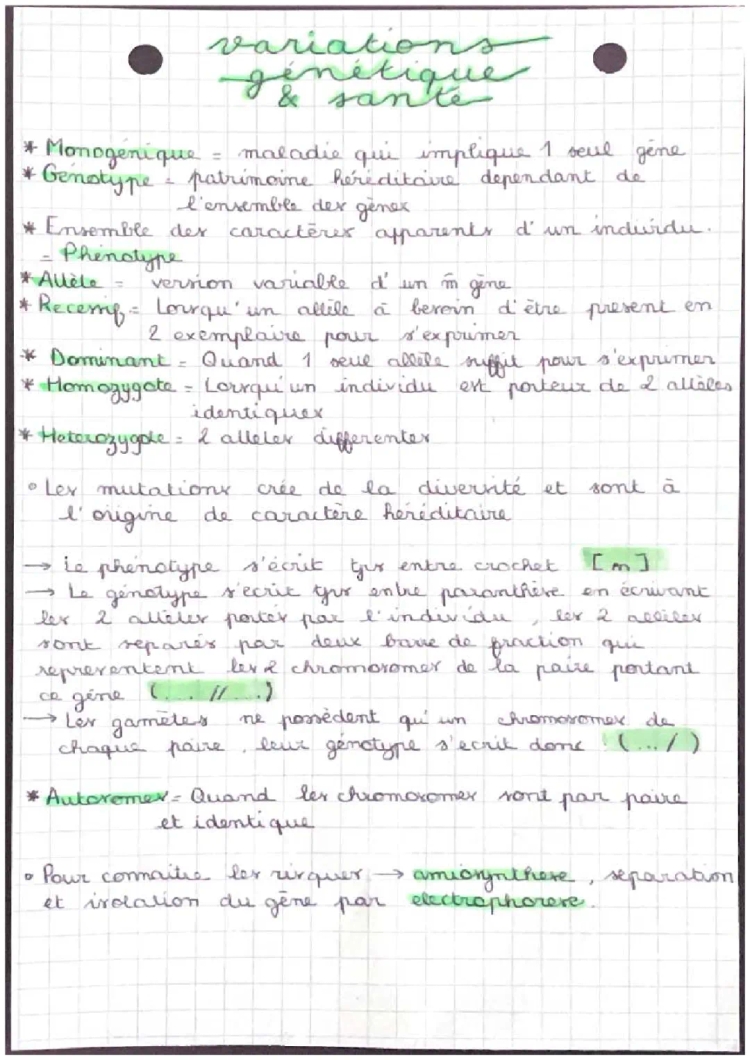 variations
génétique
& santé
* Monogénique = maladie qui implique 1 seul gène
* Génotype = patrimoine héréditaire dependant de
l'ensemble des gènes
* Ensemble des caractères apparents d'un individu.
= Phénotype
* Allèle = version variable d'un m̄ gène
* Recessif = Lorsqu'un allèle à besoin d'être present en
2 exemplaire pour s'exprimer
* Dominant = Quand 1 seul allèle suffit pour s'exprimer
* Homozygote = Lorsqu'un individu est porteux de 2 allèles
identiques
* Heterozygote = 2 alleles differentes
° Les mutations crée de la diversité et sont à
l'origine de caractère héréditaire
→ Le phénotype s'écrit tjrs entre crochet [m]
→ Le génotype s'écrit tjrs entre paranthèse en écrivant
les 2 allèles portés par l'individu, les 2 allèles
sont separés par deux barre de fraction qui
representent les 2 chromosomes de la paire portant
ce gène (... // ...)
→ Les gamètes ne possèdent qu'un chromosomes de
chaque paire, leur génotype s'ecrit donc (... / )
* Autosomes = Quand les chromosomes sont par paire
et identique
° Pour connaitre les risques → amiosynthese, séparation
et isolation du gène par electrophorese.